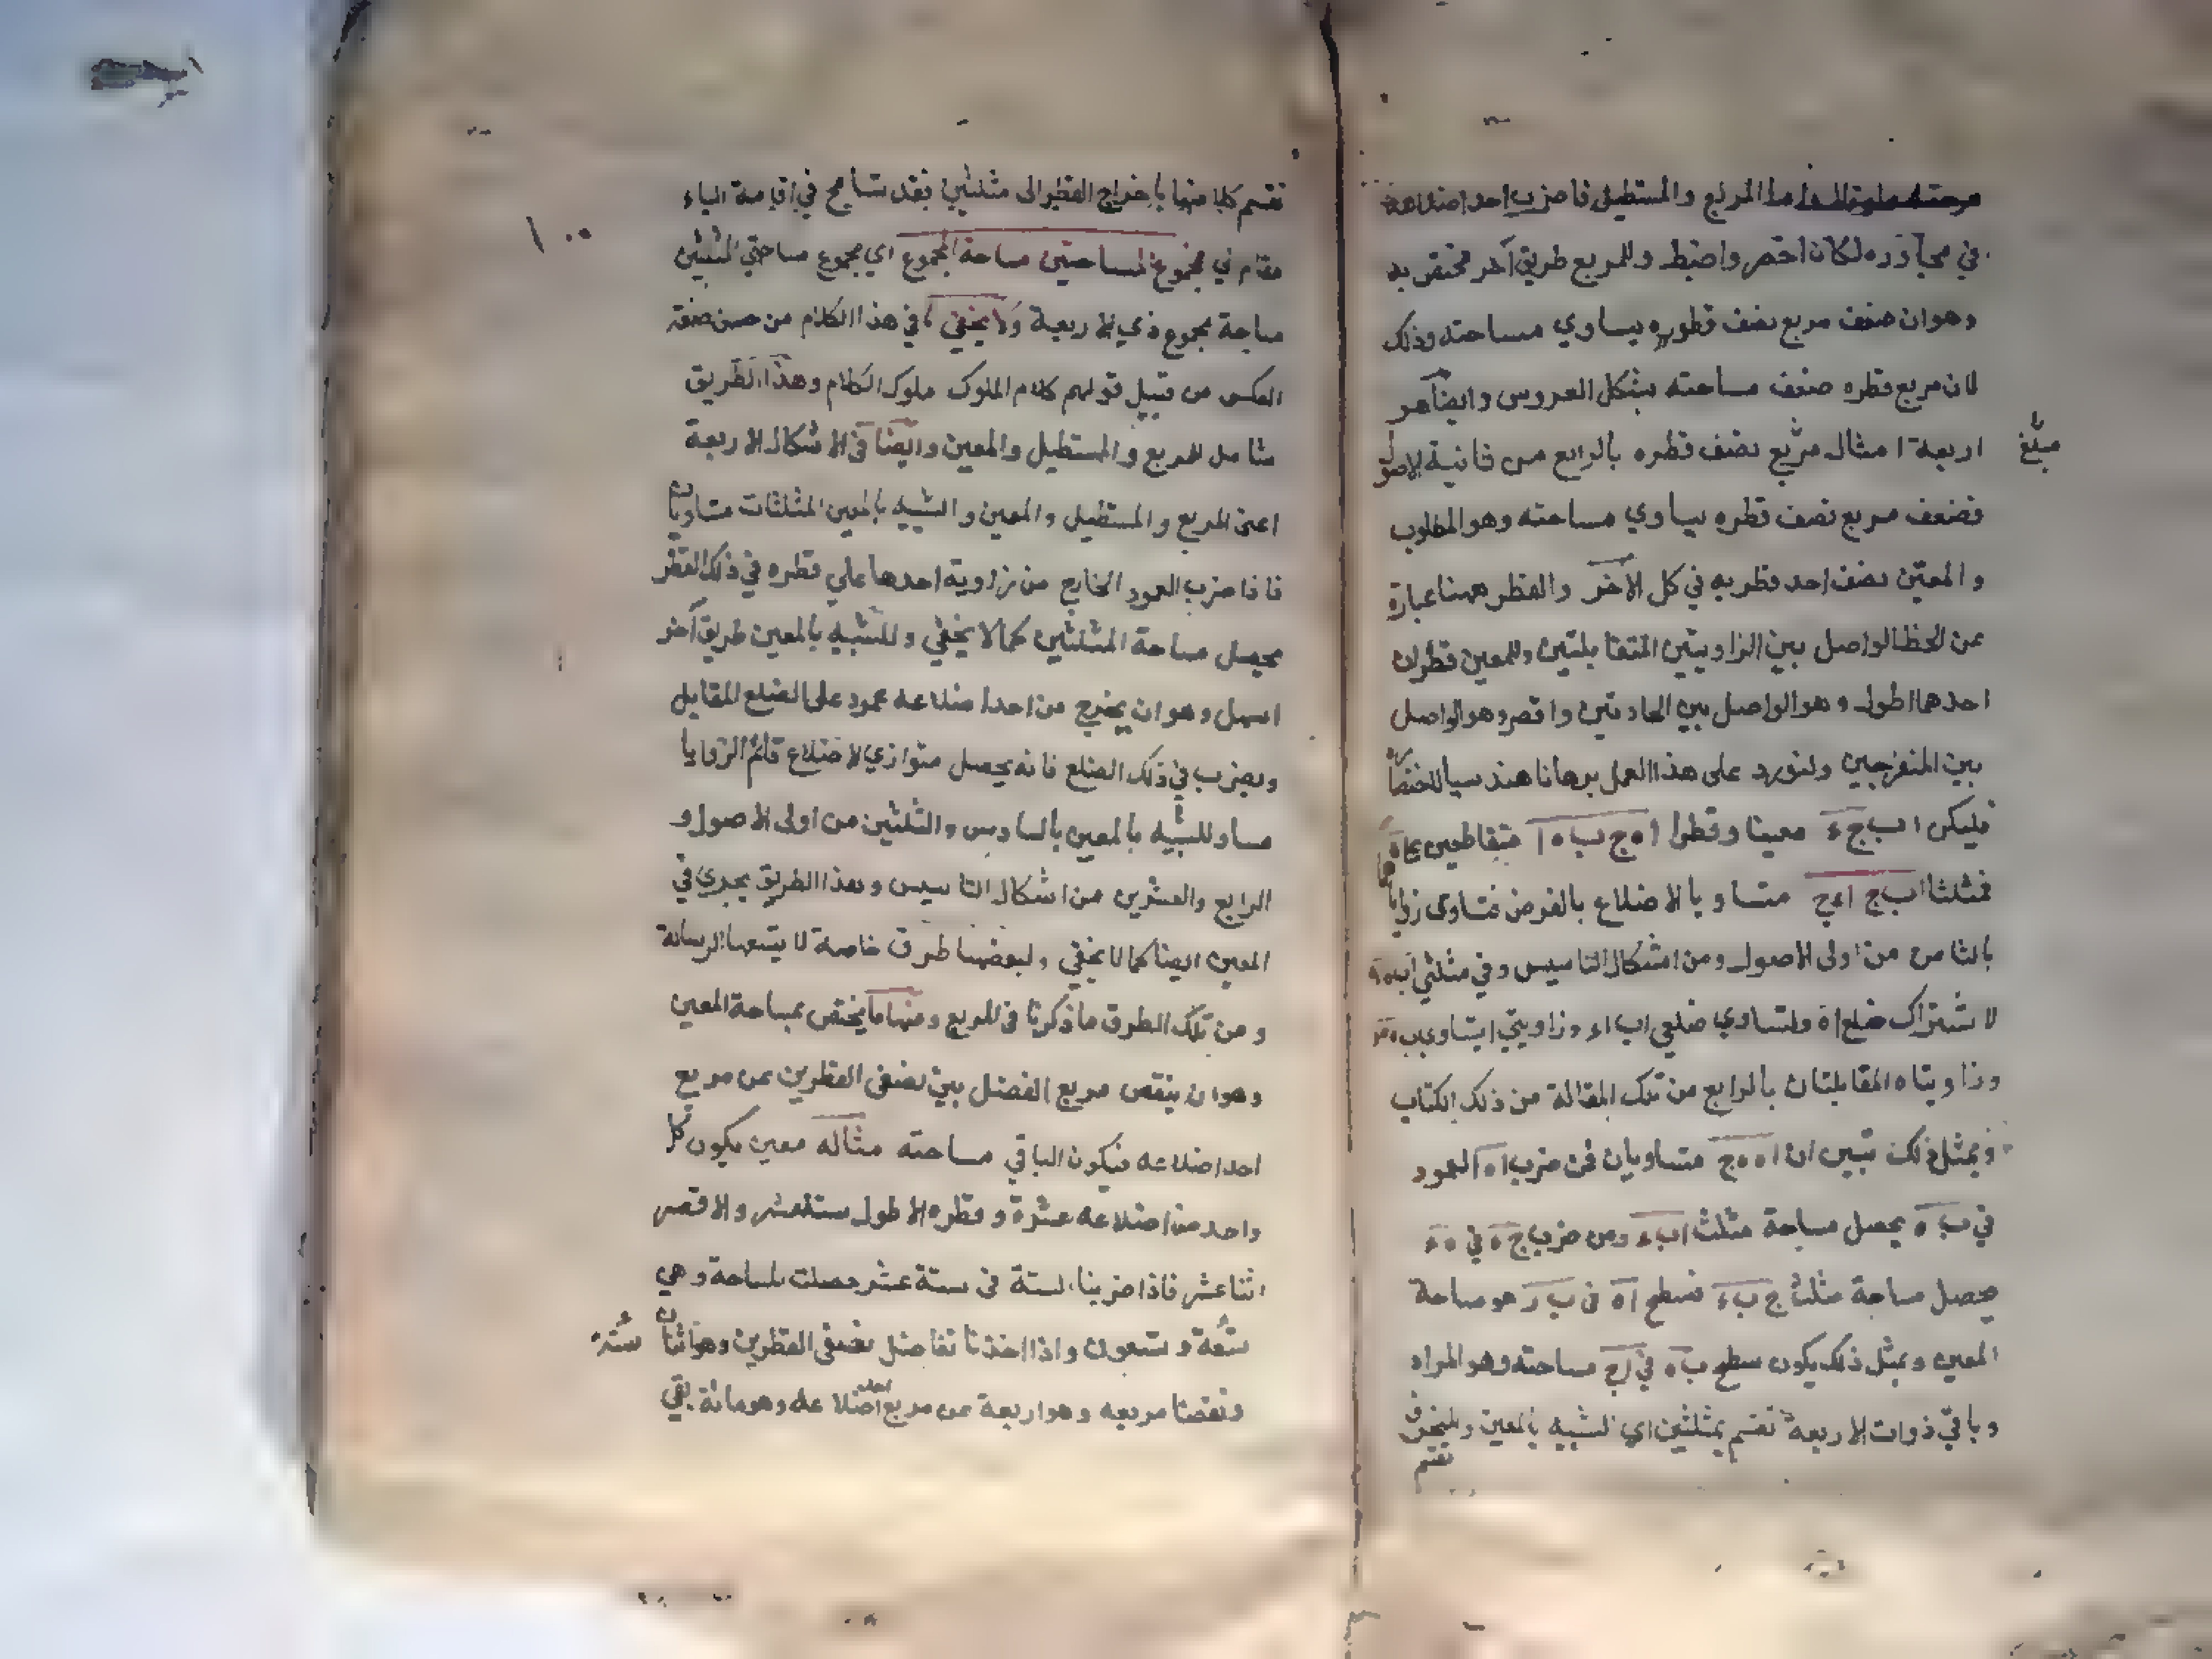 اما المربع والمستطيل فاضرب احد اضلاعه
في مجاوره لكان اخصر واضبط وللمربع طريق آخر مختص به
وهوان ضعف مربع نصف قطره يساوي مساحته وذلك
لان مربع قطره ضعف مساحته بشكل العروس وايضا هو
اربعة امثال مربع نصف قطره بالرابع من ثانية الاصول
مبلغ
فضعف مربع نصف قطره يساوي مساحته وهو المطلوب
والمعين نصف احد قطريه في كل الآخر والقطر ههنا عبارة
عن الخط الواصل بين الزاويتين المتقابلتين وللمعين قطران
احدهما اطول وهو الواصل بين الحادتين واقصر وهو الواصل
بين المنفرجتين ولنورد على هذا العمل برهانا هندسيا
فليكن ا ب ج ء معينا وقطرا متقاطعين
فمثلثا ا ب ج ا ء ج متساويا الاضلاع بالفرض فتساوى زوايا
بالثامن من اولى الاصول ومن اشكال التاسيس وفي مثلثي
لاشتراك ضلع ا ه ولتساوي ضلعي ا ب ا ء وزاويتي ا يتساوى
وزاويتا ه المقابلتان بالرابع من تلك المقالة من ذلك الكتاب
وبمثل ذلك تبين ان ا ه ه ج متساويان فمن ضرب ا ه العمود
في ب ه يحصل مساحة مثلث ا ب ء ومن ضرب ج ه في ه ء
يحصل مساحة مثلث ج ب ء فسطح ا ه في ب ء هو مساحة
المعين وبمثل ذلك يكون سطح ب ه في ا ج مساحته وهو المراد
وباقي ذوات الاربعة تقسم بمثلثين اي الشبيه بالمعين والمنحرف
تقسم
تقسم كلا منها باخراج القطر الى مثلثين فقد تسامح في اقامة الباء
مقام في فمجموع المساحتين مساحة المجموع اي مجموع مساحتي المثلثين
مساحة مجموع ذي الاربعة ولا يخفى ما في هذا الكلام من حسن صنعة
العكس من قبيل قولهم كلام الملوك ملوك الكلام وهذا الطريق
شامل للمربع والمستطيل والمعين وايضا في الاشكال الاربعة
اعنى المربع والمستطيل والمعين والشبيه بالمعين المثلثات متساويان
فاذا ضرب العمود الخارج من زاوية احدها على قطره في ذلك القطر
يحصل مساحة المثلثين كما لا يخفي وللشبيه بالمعين طريق آخر
اسهل وهو ان يخرج من احد اضلاعه عمود على الضلع المقابل
ويضرب في ذلك الضلع فانه يحصل متوازي الاضلاع قائم الزوايا
مساو للشبيه بالمعين بالسادس والثلثين من اولى الاصول و
الرابع والعشرين من اشكال التاسيس وهذا الطريق يجري في
المعين ايضا كما لا يخفي ولبعضها طرق خاصة لا يتسعها الرسالة
ومن تلك الطرق ما ذكرنا في المربع ومنها ما يختص بمساحة المعين
وهو ان ينقص مربع الفضل بين نصفى القطرين من مربع
احد اضلاعه فيكون الباقي مساحته مثاله معين يكون كل
واحد من اضلاعه عشرة وقطره الاطول ستة عشر والاقصر
اثنا عشر فاذا ضربنا الستة في ستة عشر حصلت المساحة وهي
ستة وتسعون واذا اخذنا تفاضل نصفى القطرين وهو اثنان
ستة
ونقصنا مربعه وهو اربعة من مربع احد اضلاعه وهو مائة بقي
١٠٠